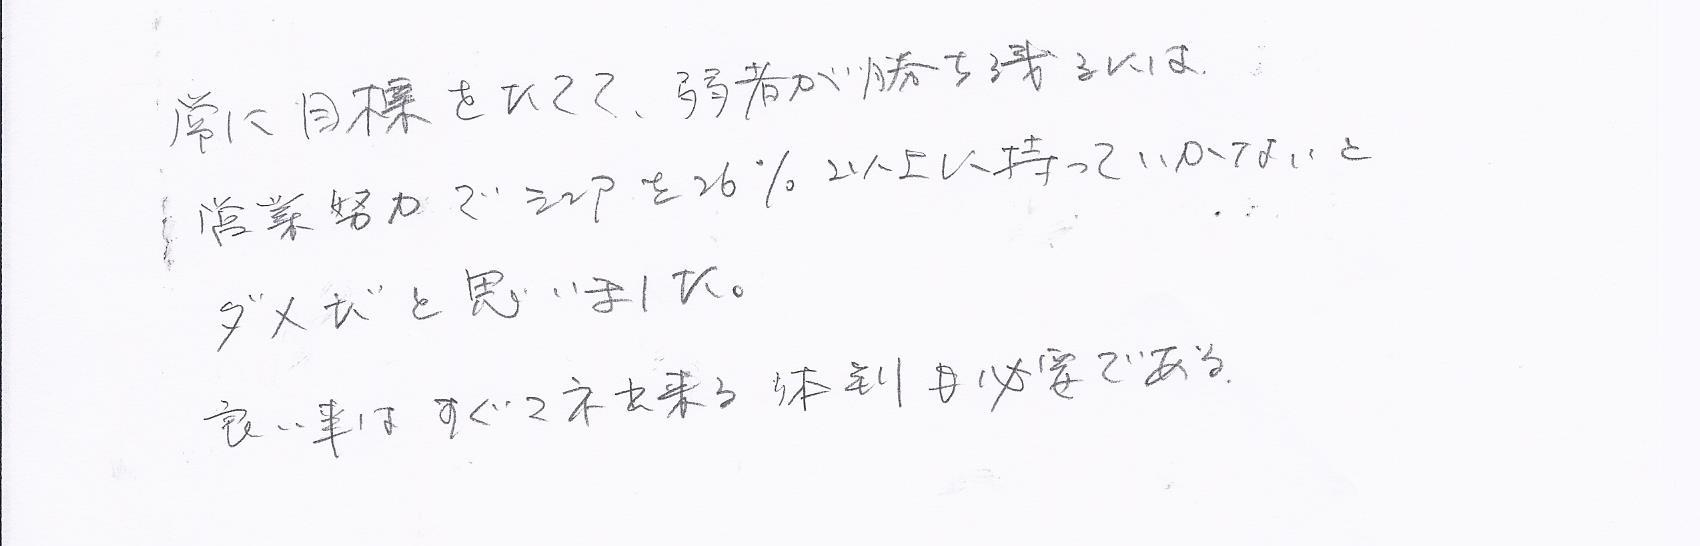 常に目標をたてて、弱者が勝ち残るには
営業努力でシェアを26%以上に持っていかないと
ダメだと思いました。
良い事はすぐマネ出来る体制も必要である。